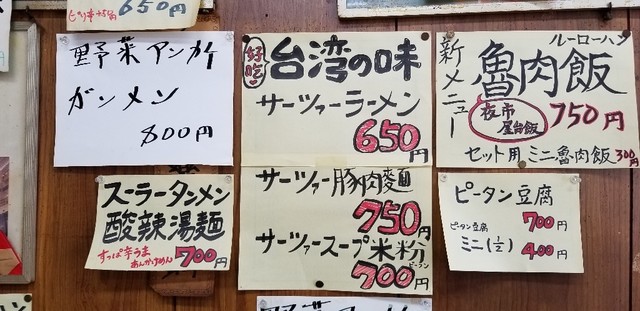 ピリ辛+50円
650円
野菜アンカケ
ガンメン
800円
好吃
台湾の味
サーツァーラーメン
650円
サーツァー豚肉麺
750円
サーツァースープ米粉
ビーフン
700円
新メニュー
ルーローハン
魯肉飯
夜市
屋台飯
750円
セット用ミニ魯肉飯300円
スーラータンメン
酸辣湯麺
すっぱ辛うま
あんかけめん
700円
ピータン豆腐
700円
ピータン豆腐
ミニ(½)
400円